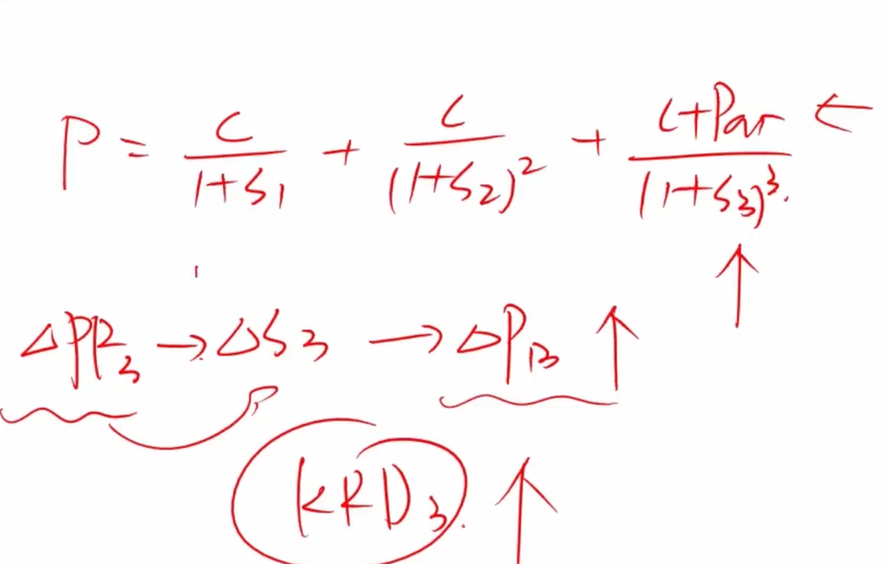 P = C/(1+S₁) + C/(1+S₂)² + (C+Par)/(1+S₃)³ ←
↑
△PR₃ → △S₃ → △P_B ↑
KRD₃ ↑